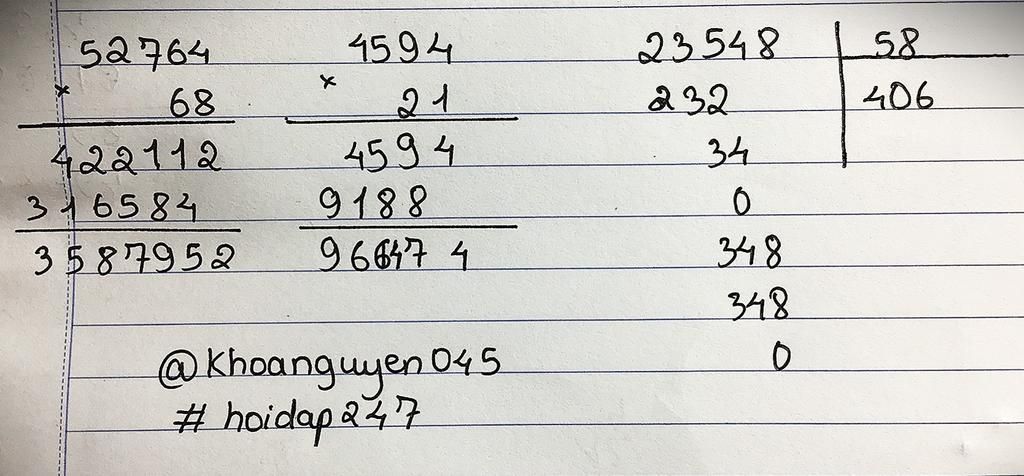 52764
× 68
422112
316584
3587952
4594
× 21
4594
9188
96474
23548 58
232 406
34
0
348
348
0
@khoanguyen045
# hoidap247